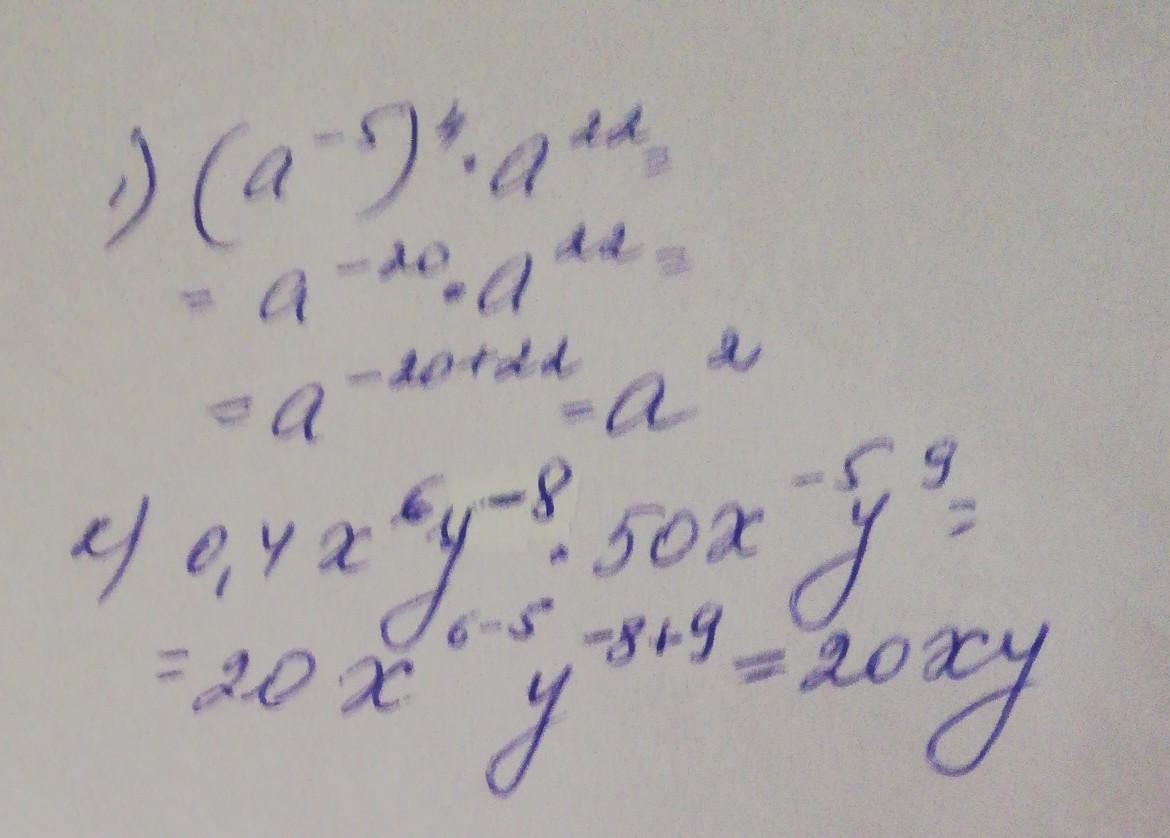 1) (a⁻⁵)⁴ · a²² =
= a⁻²⁰ · a²² =
= a⁻²⁰⁺²² = a²
2) 0,4x⁶y⁻⁸ · 50x⁻⁵y⁹ =
= 20x⁶⁻⁵y⁻⁸⁺⁹ = 20xy